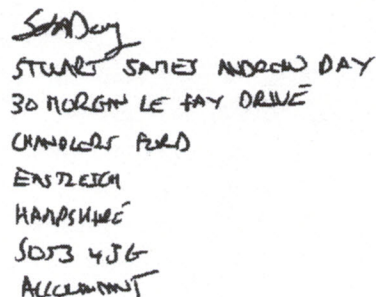 STUART JAMES ANDREW DAY
30 MORGAN LE FAY DRIVE
CHANDLERS FORD
EASTLEIGH
HAMPSHIRE
SO53 4JG
ACCOUNTANT